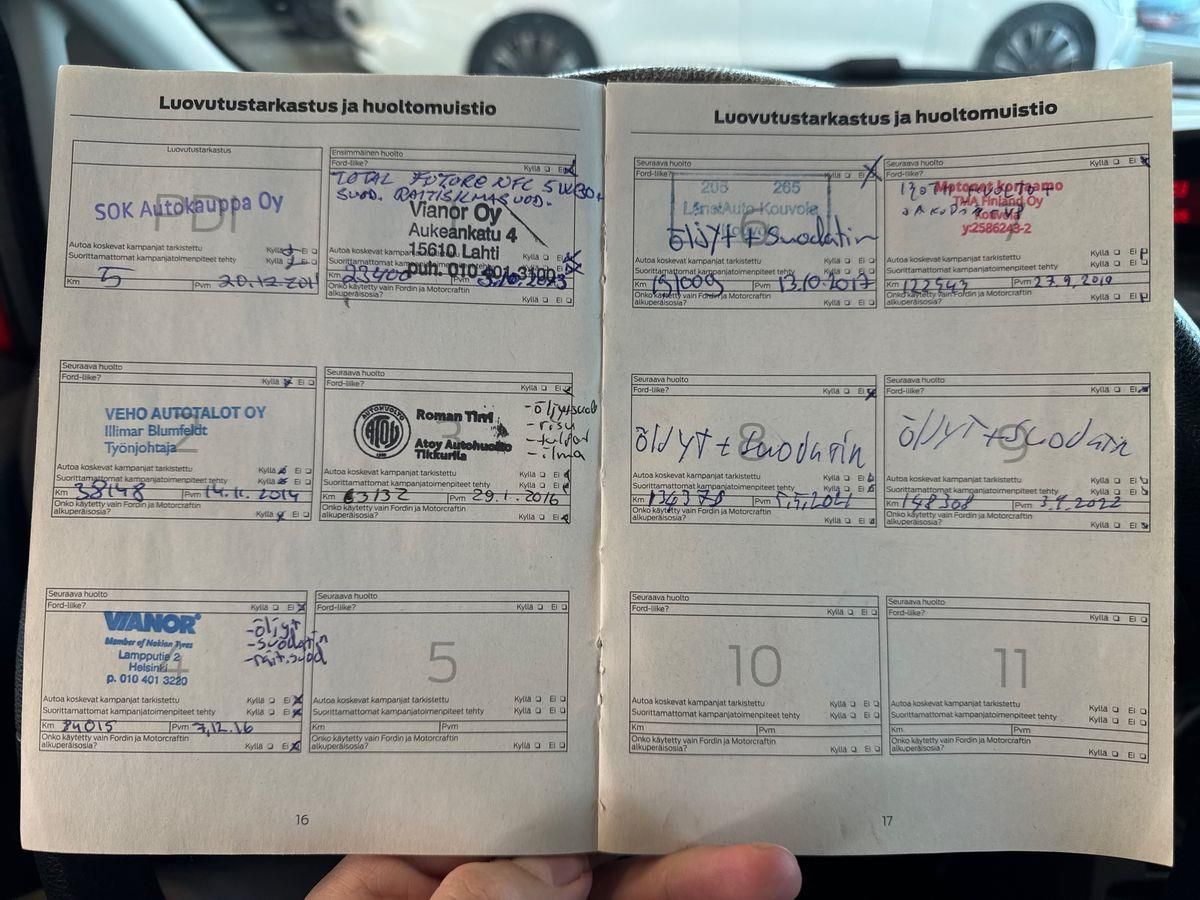 Luovutustarkastus ja huoltomuistio
Luovutustarkastus
PDI
SOK Autokauppa Oy
Autoa koskevat kampanjat tarkistettu Kyllä Ei
Suorittamattomat kampanjatoimenpiteet tehty Kyllä Ei
Km 5 Pvm
Ensimmäinen huolto
Ford-liike? Kyllä Ei
TOTAL FUTURE NFC 5W30+
SUOD. RAITISILMASUOD.
Vianor Oy
Aukeankatu 4
15610 Lahti
puh. 010 401 3100
Autoa koskevat kampanjat tarkistettu
Suorittamattomat kampanjatoimenpiteet tehty
Km 22400 Pvm
Onko käytetty vain Fordin ja Motorcraftin
alkuperäisosia? Kyllä Ei
Seuraava huolto
Ford-liike? Kyllä Ei
2
VEHO AUTOTALOT OY
Illimar Blumfeldt
Työnjohtaja
Autoa koskevat kampanjat tarkistettu Kyllä Ei
Suorittamattomat kampanjatoimenpiteet tehty Kyllä Ei
Km 38148 Pvm 14.11.2014
Onko käytetty vain Fordin ja Motorcraftin
alkuperäisosia? Kyllä Ei
Seuraava huolto
Ford-liike? Kyllä Ei
3
AUTOHUOLTO
ATOY
Roman Tirri
Atoy Autohuolto
Tikkurila
-öljy+suod
-ilma
Autoa koskevat kampanjat tarkistettu Kyllä Ei
Suorittamattomat kampanjatoimenpiteet tehty Kyllä Ei
Km 63132 Pvm 29.1.2016
Onko käytetty vain Fordin ja Motorcraftin
alkuperäisosia? Kyllä Ei
Seuraava huolto
Ford-liike? Kyllä Ei
4
VIANOR
Member of Nokian Tyres
Lampputie 2
Helsinki
p. 010 401 3220
-öljyt
-suodatin
-rait.suod
Autoa koskevat kampanjat tarkistettu Kyllä Ei
Suorittamattomat kampanjatoimenpiteet tehty Kyllä Ei
Km 84015 Pvm 7.12.16
Onko käytetty vain Fordin ja Motorcraftin
alkuperäisosia? Kyllä Ei
Seuraava huolto
Ford-liike? Kyllä Ei
5
Autoa koskevat kampanjat tarkistettu Kyllä Ei
Suorittamattomat kampanjatoimenpiteet tehty Kyllä Ei
Km Pvm
Onko käytetty vain Fordin ja Motorcraftin
alkuperäisosia? Kyllä Ei
16
Luovutustarkastus ja huoltomuistio
Seuraava huolto
Ford-liike? Kyllä Ei
6
205 265
LänsiAuto Kouvola
öljyt + suodatin
Autoa koskevat kampanjat tarkistettu Kyllä Ei
Suorittamattomat kampanjatoimenpiteet tehty Kyllä Ei
Km Pvm 13.10.2017
Onko käytetty vain Fordin ja Motorcraftin
alkuperäisosia? Kyllä Ei
Seuraava huolto
Ford-liike? Kyllä Ei
7
Motonet korjaamo
TMA Finland Oy
Kouvola
y:2586243-2
Autoa koskevat kampanjat tarkistettu Kyllä Ei
Suorittamattomat kampanjatoimenpiteet tehty Kyllä Ei
Km 122543 Pvm
Onko käytetty vain Fordin ja Motorcraftin
alkuperäisosia? Kyllä Ei
Seuraava huolto
Ford-liike? Kyllä Ei
8
öljyt + suodatin
Autoa koskevat kampanjat tarkistettu Kyllä Ei
Suorittamattomat kampanjatoimenpiteet tehty Kyllä Ei
Km 134378 Pvm
Onko käytetty vain Fordin ja Motorcraftin
alkuperäisosia? Kyllä Ei
Seuraava huolto
Ford-liike? Kyllä Ei
9
öljyt + suodatin
Autoa koskevat kampanjat tarkistettu Kyllä Ei
Suorittamattomat kampanjatoimenpiteet tehty Kyllä Ei
Km 148308 Pvm
Onko käytetty vain Fordin ja Motorcraftin
alkuperäisosia? Kyllä Ei
Seuraava huolto
Ford-liike? Kyllä Ei
10
Autoa koskevat kampanjat tarkistettu Kyllä Ei
Suorittamattomat kampanjatoimenpiteet tehty Kyllä Ei
Km Pvm
Onko käytetty vain Fordin ja Motorcraftin
alkuperäisosia? Kyllä Ei
Seuraava huolto
Ford-liike? Kyllä Ei
11
Autoa koskevat kampanjat tarkistettu Kyllä Ei
Suorittamattomat kampanjatoimenpiteet tehty Kyllä Ei
Km Pvm
Onko käytetty vain Fordin ja Motorcraftin
alkuperäisosia? Kyllä Ei
17